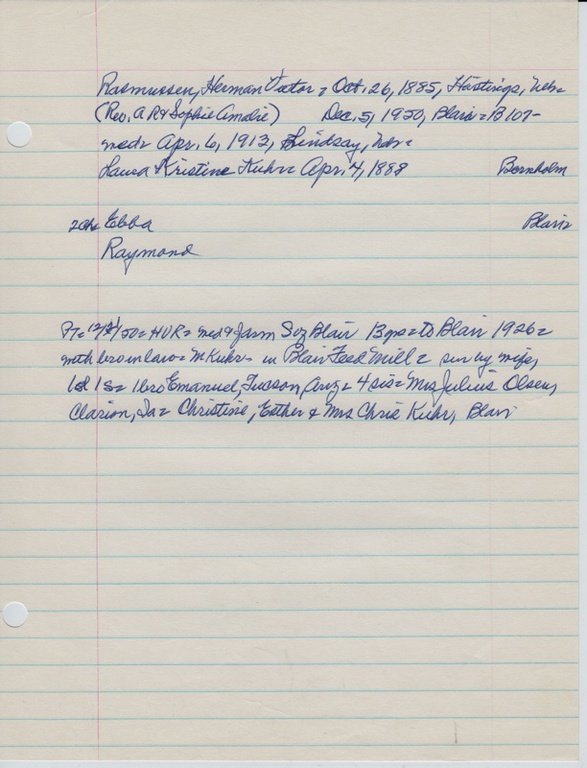 Rasmussen, Herman Victor = Oct. 26, 1885, Hastings, Nebr
(Rev. A R & Sophie Amalie) Dec. 5, 1950, Blair = B107-
med= Apr. 6, 1913, Lindsay, Nebr=
Laura Kristine Kuhr= Apr. 4, 1888 Bornholm
2ch= Ebba Blair=
Raymond
Pt= 12/21/50= HVR= med & farm S of Blair 13 yrs= to Blair 1926=
with bro in law= M Kuhr= in Blair Feed Mill= surv by wife,
1d 1s= 1 bro Emanuel, Tucson, Ariz= 4 sis= Mrs Julius Olsen,
Clarion, Ia= Christine, Esther & Mrs Chris Kuhr, Blair